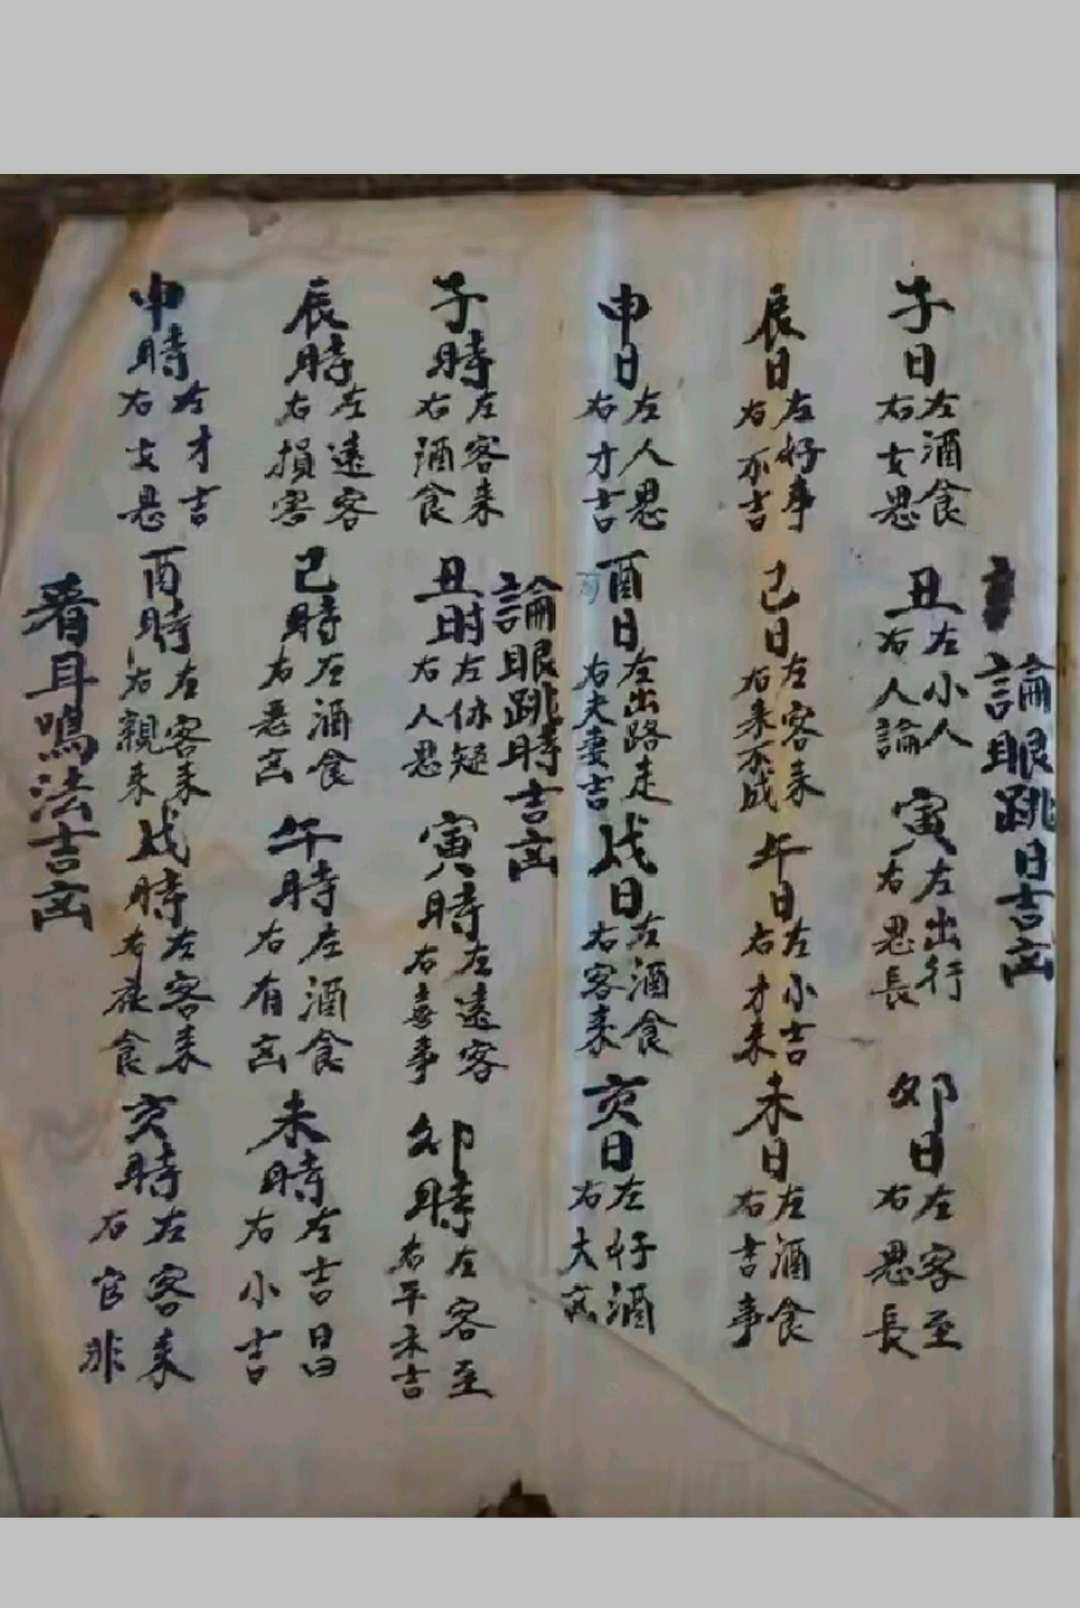 論眼跳日吉凶
子日左酒食右女思
丑左小人右人論
寅左出行右思長
卯日左客至右思長
辰日左好事右不吉
己日左客来右来不成
午日左小吉右才来
未日左酒食右吉事
申日左人思右才吉
酉日左出路走右夫妻吉
戌日左酒食右客来
亥日左好酒右大凶
論眼跳時吉凶
子時左客来右酒食
丑时左休疑右人思
寅時左遠客右喜事
卯時左客至右平未吉
辰時左遠客右損害
己時左酒食右悪凶
午時左酒食右有凶
未時左吉昌右小吉
申時左才吉右女思
酉時左客来右親来
戌時左客来右食
亥時左客来右官非
看耳鳴法吉凶